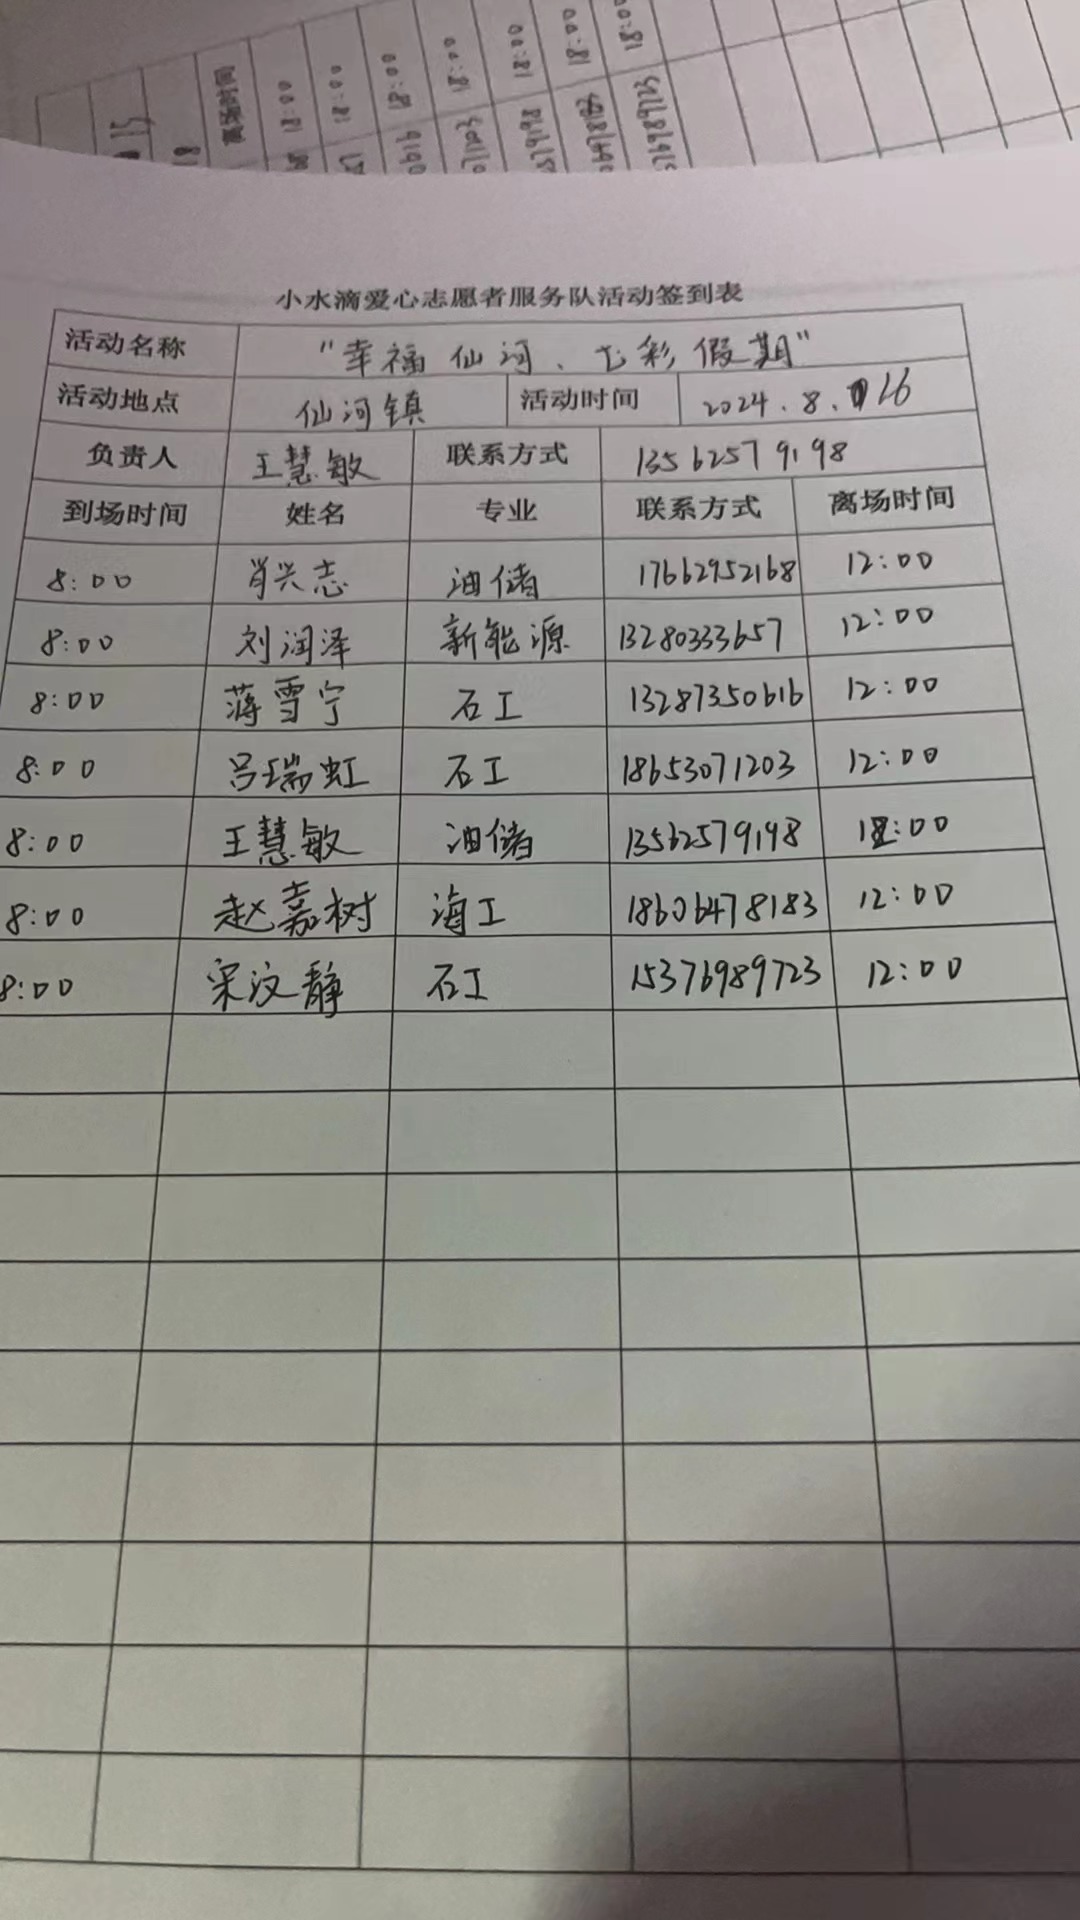 小水滴爱心志愿者服务队活动签到表
活动名称 "幸福仙河、七彩假期"
活动地点 仙河镇 活动时间 2024.8.16
负责人 王慧敏 联系方式 13562579198
到场时间 姓名 专业 联系方式 离场时间
8:00 肖兴志 油储 17662952168 12:00
8:00 刘润泽 新能源 13280333657 12:00
8:00 薄雪宁 石工 13287350616 12:00
8:00 吕瑞虹 石工 18653071203 12:00
8:00 王慧敏 油储 13562579198 12:00
8:00 赵嘉树 海工 18606478183 12:00
8:00 宋汶静 石工 15376989723 12:00
离场时间
18:00
18:00
18:00
18:00
18:00
18:00
18:00